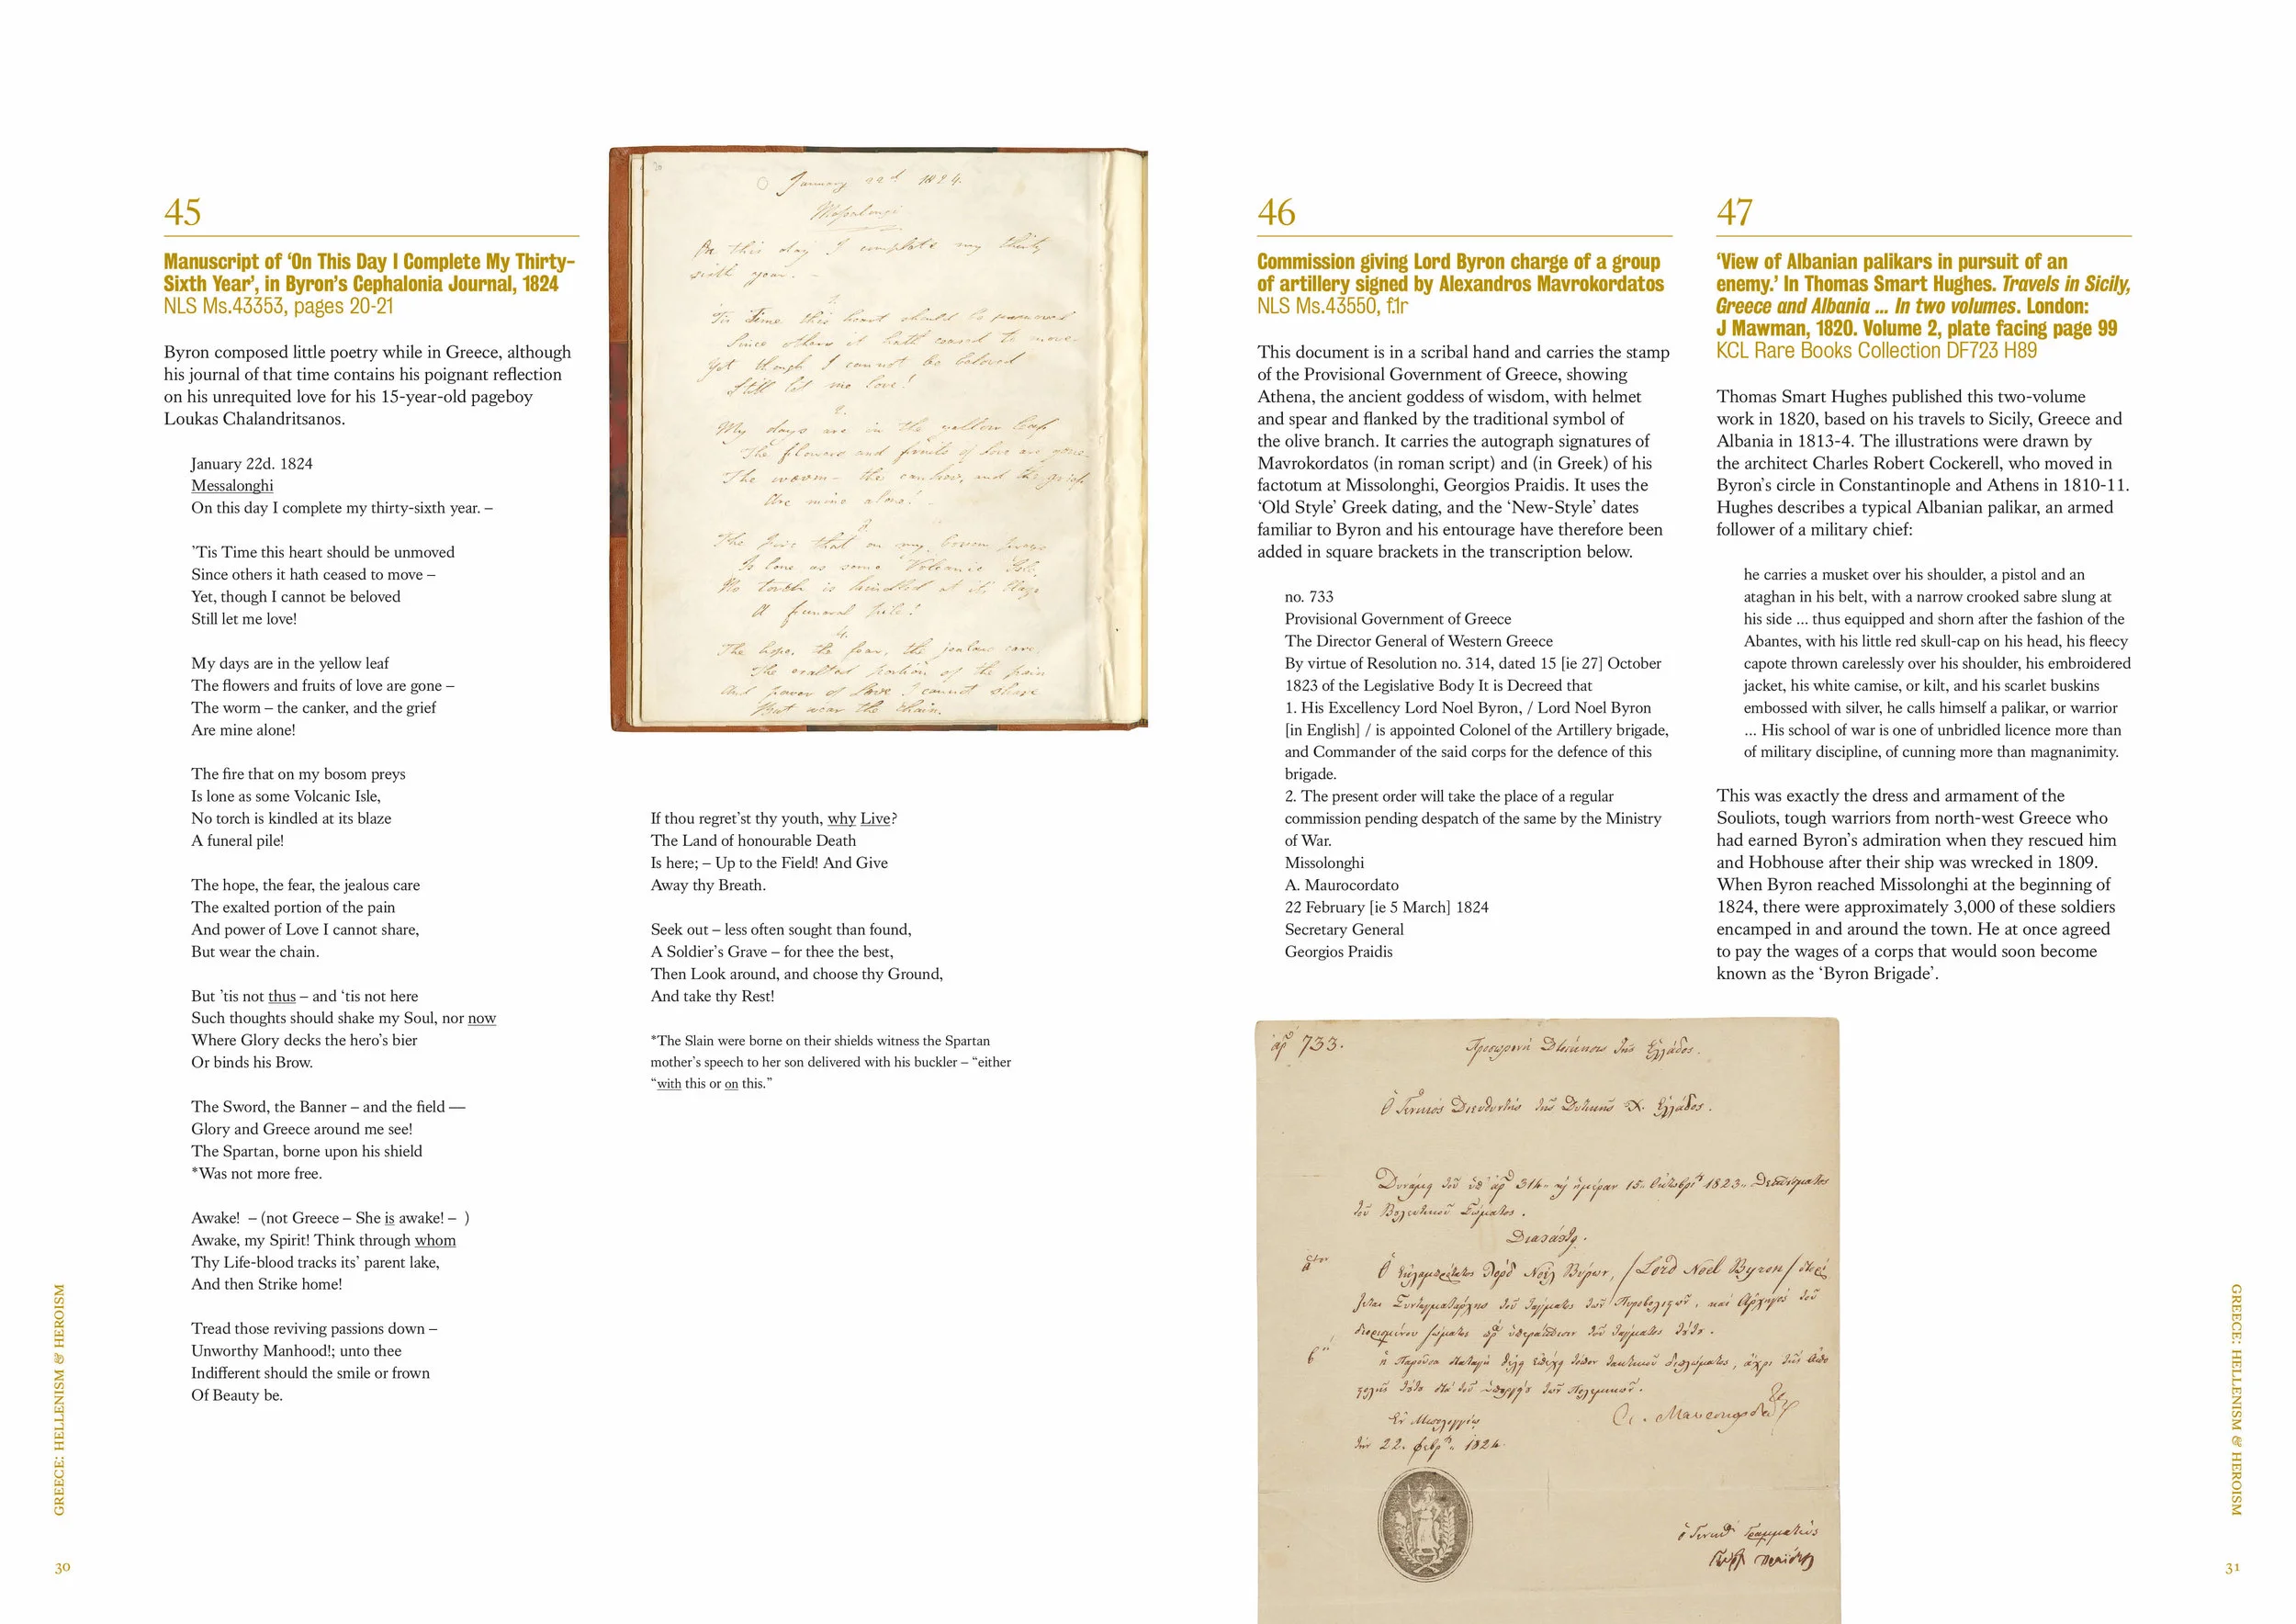 45
Manuscript of ‘On This Day I Complete My Thirty-
Sixth Year’, in Byron’s Cephalonia Journal, 1824
NLS Ms.43353, pages 20-21
Byron composed little poetry while in Greece, although
his journal of that time contains his poignant reflection
on his unrequited love for his 15-year-old pageboy
Loukas Chalandritsanos.
January 22d. 1824
Messalonghi
On this day I complete my thirty-sixth year. –
’Tis Time this heart should be unmoved
Since others it hath ceased to move –
Yet, though I cannot be beloved
Still let me love!
My days are in the yellow leaf
The flowers and fruits of love are gone –
The worm – the canker, and the grief
Are mine alone!
The fire that on my bosom preys
Is lone as some Volcanic Isle,
No torch is kindled at its blaze
A funeral pile!
The hope, the fear, the jealous care
The exalted portion of the pain
And power of Love I cannot share,
But wear the chain.
But ’tis not thus – and ‘tis not here
Such thoughts should shake my Soul, nor now
Where Glory decks the hero’s bier
Or binds his Brow.
The Sword, the Banner – and the field —
Glory and Greece around me see!
The Spartan, borne upon his shield
*Was not more free.
Awake!  – (not Greece – She is awake! –  )
Awake, my Spirit! Think through whom
Thy Life-blood tracks its’ parent lake,
And then Strike home!
Tread those reviving passions down –
Unworthy Manhood!; unto thee
Indifferent should the smile or frown
Of Beauty be.
January 22d 1824.
Messalongi
On this day I complete my thirty
sixth year. –
1.
'Tis Time this heart should be unmoved
Since others it hath ceased to move
Yet though I cannot be beloved
Still let me love!
2.
My days are in the yellow leaf
The flowers and fruits of love are gone –
The worm – the canker, and the grief
Are mine alone! –
3.
The fire that on my bosom preys
Is lone as some Volcanic Isle,
No torch is kindled at its blaze
A funeral pile!
4.
The hope, the fear, the jealous care,
The exalted portion of the pain
And power of Love I cannot share
But wear the chain.
If thou regret’st thy youth, why Live?
The Land of honourable Death
Is here; – Up to the Field! And Give
Away thy Breath.
Seek out – less often sought than found,
A Soldier’s Grave – for thee the best,
Then Look around, and choose thy Ground,
And take thy Rest!
*The Slain were borne on their shields witness the Spartan
mother’s speech to her son delivered with his buckler – “either
“with this or on this.”
GREECE: HELLENISM & HEROISM
30
46
Commission giving Lord Byron charge of a group
of artillery signed by Alexandros Mavrokordatos
NLS Ms.43550, f.1r
This document is in a scribal hand and carries the stamp
of the Provisional Government of Greece, showing
Athena, the ancient goddess of wisdom, with helmet
and spear and flanked by the traditional symbol of
the olive branch. It carries the autograph signatures of
Mavrokordatos (in roman script) and (in Greek) of his
factotum at Missolonghi, Georgios Praidis. It uses the
‘Old Style’ Greek dating, and the ‘New-Style’ dates
familiar to Byron and his entourage have therefore been
added in square brackets in the transcription below.
no. 733
Provisional Government of Greece
The Director General of Western Greece
By virtue of Resolution no. 314, dated 15 [ie 27] October
1823 of the Legislative Body It is Decreed that
1. His Excellency Lord Noel Byron, / Lord Noel Byron
[in English] / is appointed Colonel of the Artillery brigade,
and Commander of the said corps for the defence of this
brigade.
2. The present order will take the place of a regular
commission pending despatch of the same by the Ministry
of War.
Missolonghi
A. Maurocordato
22 February [ie 5 March] 1824
Secretary General
Georgios Praidis
733.
Προσωρινὴ Διοίκησις τῆς Ἑλλάδος.
Ὁ Γενικὸς Διευθυντὴς τῆς Δυτικῆς Χ. Ἑλλάδος.
314 15 1823
τοῦ Βουλευτικοῦ Σώματος.
Διατάττει.
Λορδ Νοὲλ Βύρων, / Lord Noel Byron /
22 1824
47
‘View of Albanian palikars in pursuit of an
enemy.’ In Thomas Smart Hughes. Travels in Sicily,
Greece and Albania ... In two volumes. London:
J Mawman, 1820. Volume 2, plate facing page 99
KCL Rare Books Collection DF723 H89
Thomas Smart Hughes published this two-volume
work in 1820, based on his travels to Sicily, Greece and
Albania in 1813-4. The illustrations were drawn by
the architect Charles Robert Cockerell, who moved in
Byron’s circle in Constantinople and Athens in 1810-11.
Hughes describes a typical Albanian palikar, an armed
follower of a military chief:
he carries a musket over his shoulder, a pistol and an
ataghan in his belt, with a narrow crooked sabre slung at
his side ... thus equipped and shorn after the fashion of the
Abantes, with his little red skull-cap on his head, his fleecy
capote thrown carelessly over his shoulder, his embroidered
jacket, his white camise, or kilt, and his scarlet buskins
embossed with silver, he calls himself a palikar, or warrior
... His school of war is one of unbridled licence more than
of military discipline, of cunning more than magnanimity.
This was exactly the dress and armament of the
Souliots, tough warriors from north-west Greece who
had earned Byron’s admiration when they rescued him
and Hobhouse after their ship was wrecked in 1809.
When Byron reached Missolonghi at the beginning of
1824, there were approximately 3,000 of these soldiers
encamped in and around the town. He at once agreed
to pay the wages of a corps that would soon become
known as the ‘Byron Brigade’.
GREECE: HELLENISM & HEROISM
31